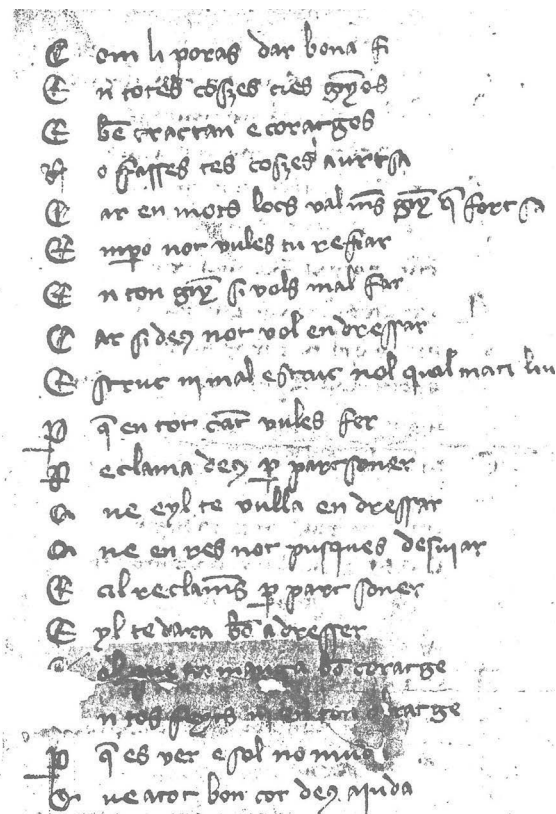 C om li poras dar bona fi
E n totes coszes ties gỹos
E bẽ tractan e coratges
N o fasses tes coszes a vuitsa
C ar en mots locs val mẽs gỹ q̃ forcsa
E mp̱o not vules tu refiar
E n ton gỹ si vols mal far
C ar si deꝯ not vol endressar
E struc ni mal estruc nol qual mati liu
P q̃ en tot cãt vules fer
R eclama deꝯ ꝑ partsoner
Q ue eyl te vulla endressar
Q ue en res not pusques desviar
E cil reclamẽs ꝑ part soner
E yl te dara bõ adresser
bõ coratge
n tos fayts ton coratge
P q̃ es ver e sol no mud
Q ue a tot bon cor deꝯ ajuda